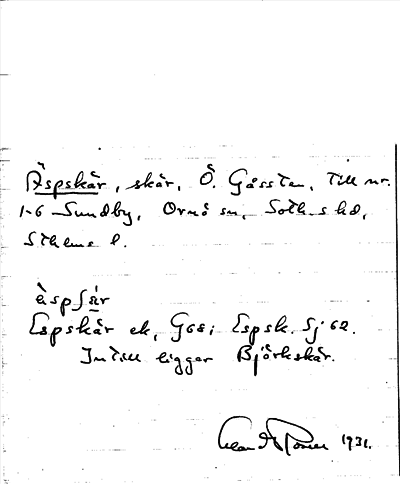 Äspskär, skär, Ö. Gåssten, till nr.
1-6 Sundby, Ornö sn, Soth. s hd,
Sthlms l.
äspʃär
Espskär ek, G68; Espsk. Sj 62.
Intill ligger Björkskär.
1931.